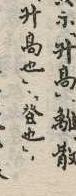 示、升高離散
升高也、登也、